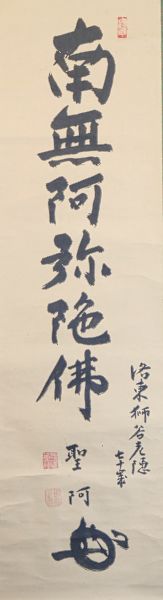 南無阿弥陀佛
洛東獅谷老隠
七十業
聖阿